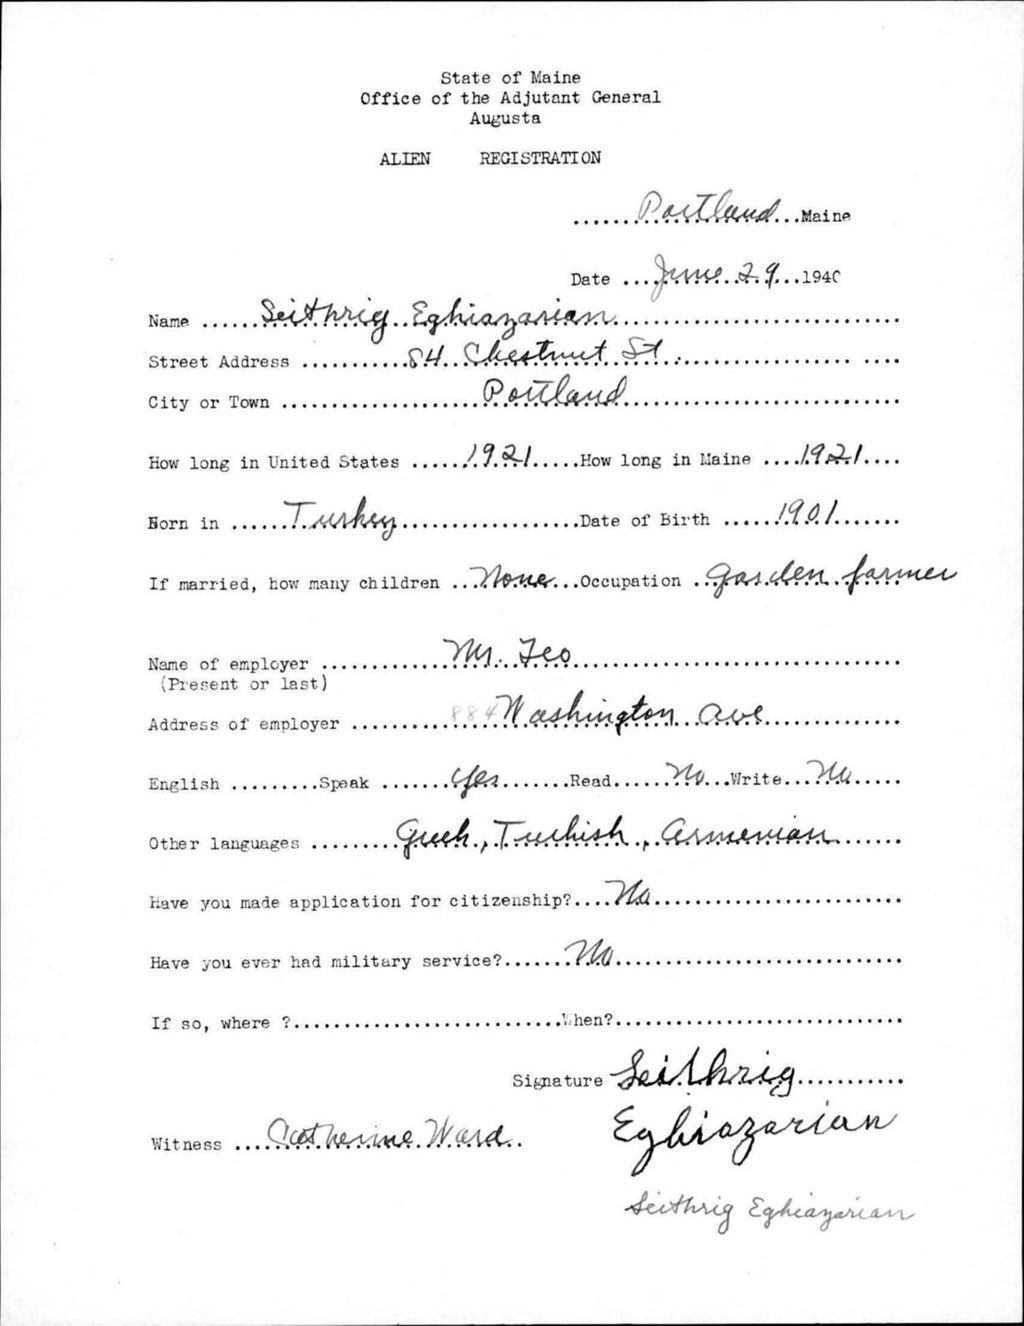 State of Maine
Office of the Adjutant General
Augusta
ALIEN REGISTRATION
......Portland...Maine
Date ...June 29...1940
Name ......Seithrig Eghiazarian............................
Street Address ...........84 Chestnut St...................... ....
City or Town ...................Portland...........................
How long in United States ......1921.....How long in Maine ....1921....
Born in ......Turkey..................Date of Birth ......1901.......
If married, how many children ...None...Occupation ..Garden farmer
Name of employer .............Mr. Leo.................................
(Present or last)
Address of employer ..........884 Washington Ave..............
English .........Speak .......Yes.......Read......No...Write...No.....
Other languages .........Greek, Turkish, Armenian.......
Have you made application for citizenship?....No.........................
Have you ever had military service?.......No.............................
If so, where ?...........................When?.............................
Signature Seithrig...........
Witness ....Catherine Ward.. Eghiazarian
Seithrig Eghiazarian